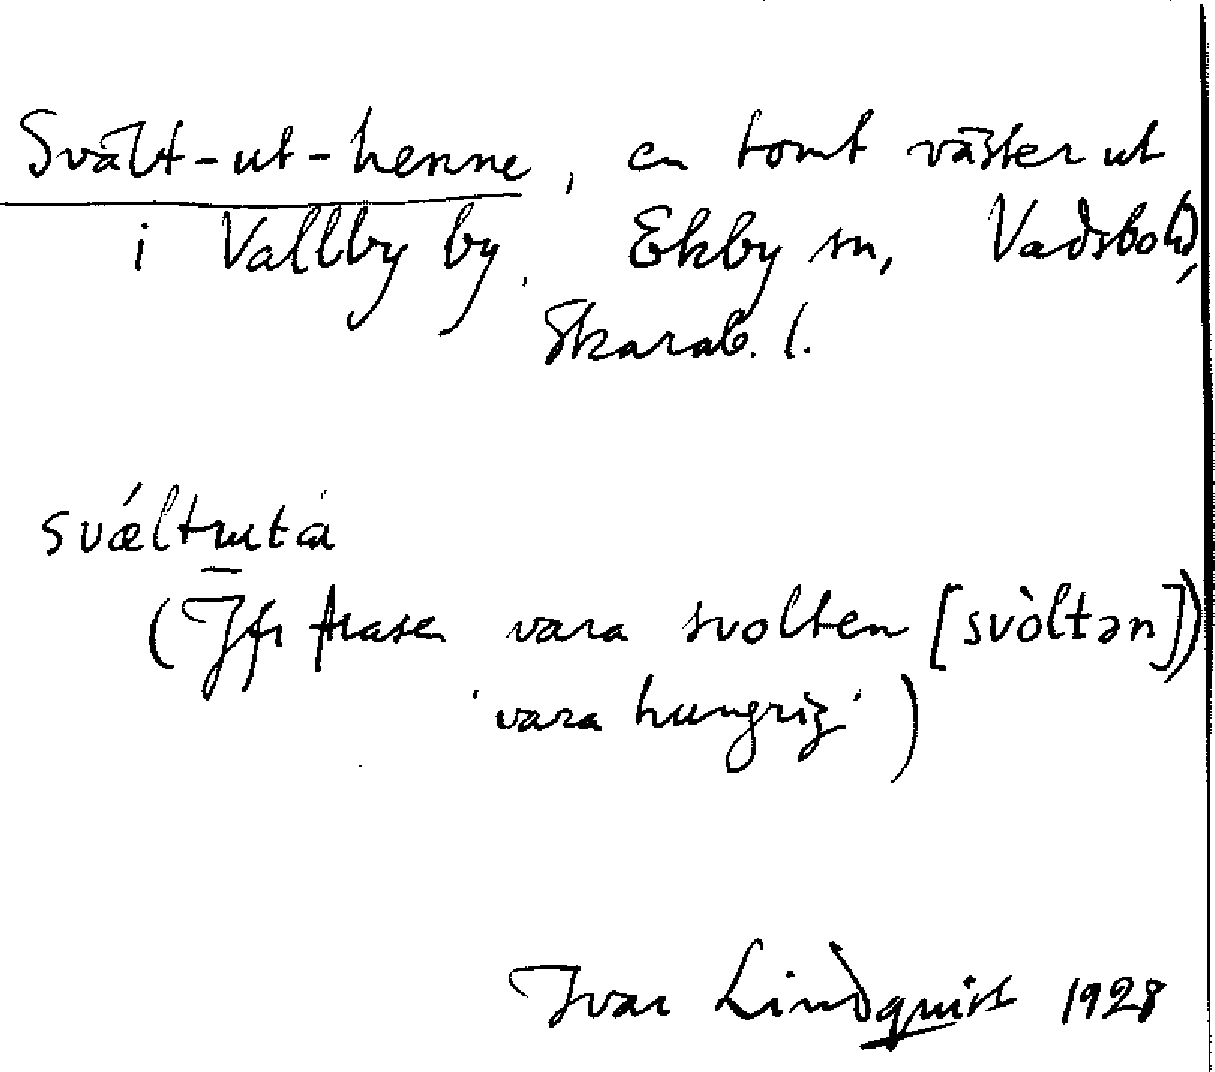 Svält-ut-henne, en tomt västerut
i Vallby by, Ekby sn, Vadsbo hd,
Skarab. l.
(Jfr frasen vara svolten [svòltən])
'vara hungrig')
Ivar Lindquist 1928